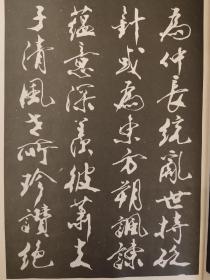 為仲長統亂世持從
針或為東方朔諷諫
蘊意深美彼蕭太
子清風之所珍讚絕